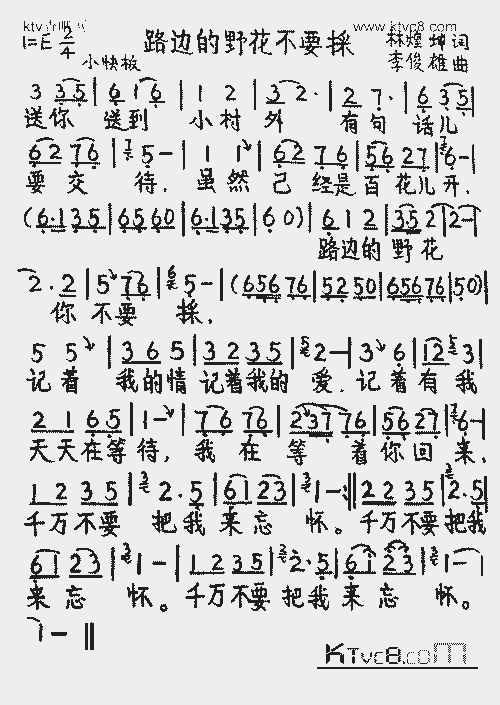 www.ktvc8.com
路边的野花不要採
1=E 2/4
林煌坤词
小快板
李俊雄曲
3 35 | 6 16 | 1 2 | 32· | 2 7· | 6 35 |
送你 送到 小村外 有句话儿
62 76 | 5 - | 1 1 | 62 76 | 56 27 | 6 - |
要交待，虽然已经是百花儿开，
(6·135 | 6560 | 6·135 | 60) | 612 | 3·52 | 2 - |
路边的野花
2·2 | 5 76 | 5 - | (656 76 | 52 50 | 656 76 | 50)
你不要採，
5 5 | 3 6 5 | 3 2 3 5 | 2 - | 3 6 | 12 3 |
记着 我的情记着我的爱，记着有我
2 1 65 | 1 - | 76 76 | 2376 | 56 27 | 6 - |
天天在等待，我在等着你回来，
12 35 | 2·5 | 61 23 | 1 - :|| 22 35 | 2·5 |
千万不要把我来忘怀。千万不要把我
61 23 | 1 - | 12 35 | 2·5 | 61 23 | 1 - |
来忘怀。千万不要把我来忘怀。
1 - ||
KTVC8.COM